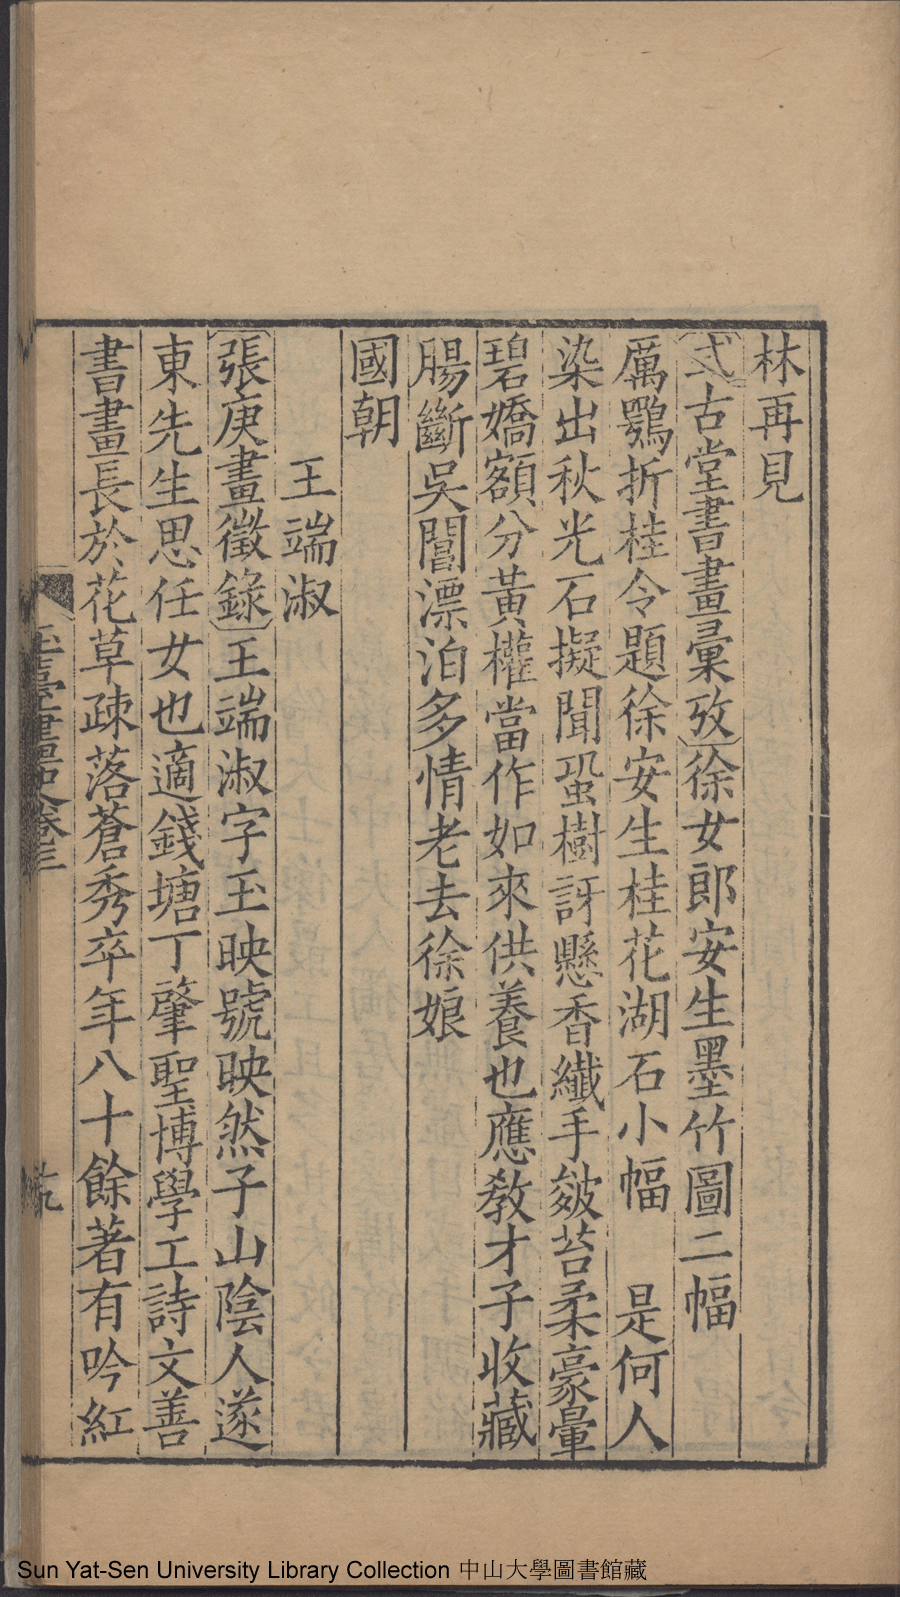 林再見
式古堂書畫彙攷徐女郎安生墨竹圖二幅
厲鶚折桂令題徐安生桂花湖石小幅 是何人
染出秋光石擬聞蛩樹訝懸香纖手皴苔柔豪暈
碧嬌額分黃權當作如來供養也應教才子收藏
腸斷吳閶漂泊多情老去徐娘
國朝
王端淑
張庚畫徵錄王端淑字玉映號映然子山陰人遂
東先生思任女也適錢塘丁肇聖博學工詩文善
書畫長於花草疎落蒼秀卒年八十餘著有吟紅
玉臺畫史卷三
Sun Yat-Sen University Library Collection 中山大學圖書館藏